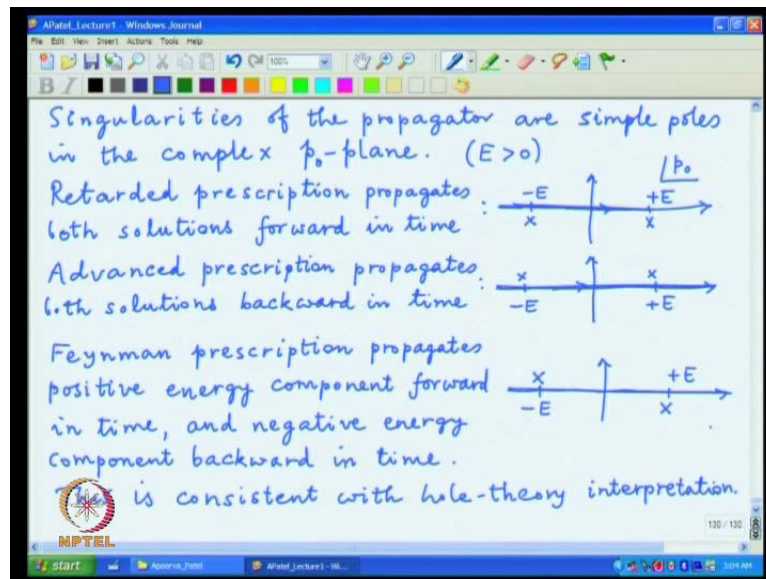 APatel_Lecture1 - Windows Journal
File Edit View Insert Actions Tools Help
100%
B I
Singularities of the propagator are simple poles
in the complex p₀-plane. (E>0)
p₀
Retarded prescription propagates :
both solutions forward in time
-E +E
x x
Advanced prescription propagates :
both solutions backward in time
x x
-E +E
Feynman prescription propagates
positive energy component forward
in time, and negative energy
component backward in time.
x +E
-E x
That is consistent with hole-theory interpretation.
130 / 130
NPTEL
start Apoorva_Patel APatel_Lecture1 - Wi... 3:04 AM